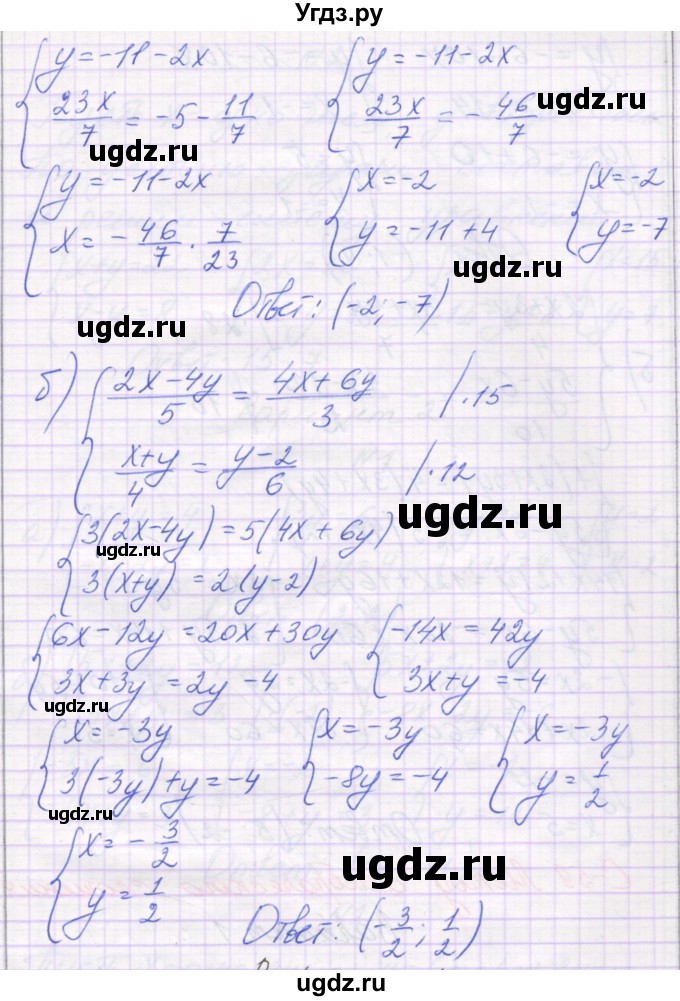 Угдз.ру
{ y = -11 - 2x   { y = -11 - 2x
23x/7 = -5 - 11/7   23x/7 = -46/7
ugdz.ru ugdz.ru
{ y = -11 - 2x   { x = -2   { x = -2
x = -46/7 · 7/23   y = -11 + 4   y = -7
ugdz.ru
Ответ: (-2; -7)
ugdz.ru
б) { (2x-4y)/5 = (4x+6y)/3 /·15
(x+y)/4 = (y-2)/6 /·12
ugdz.ru
{ 3(2x-4y) = 5(4x+6y)
3(x+y) = 2(y-2)
ugdz.ru
{ 6x - 12y = 20x + 30y   { -14x = 42y
3x + 3y = 2y - 4   3x + y = -4
ugdz.ru
{ x = -3y   { x = -3y   { x = -3y
3(-3y) + y = -4   -8y = -4   y = 1/2
ugdz.ru
{ x = -3/2
y = 1/2
ugdz.ru
Ответ: (-3/2; 1/2)
ugdz.ru
ugdz.ru